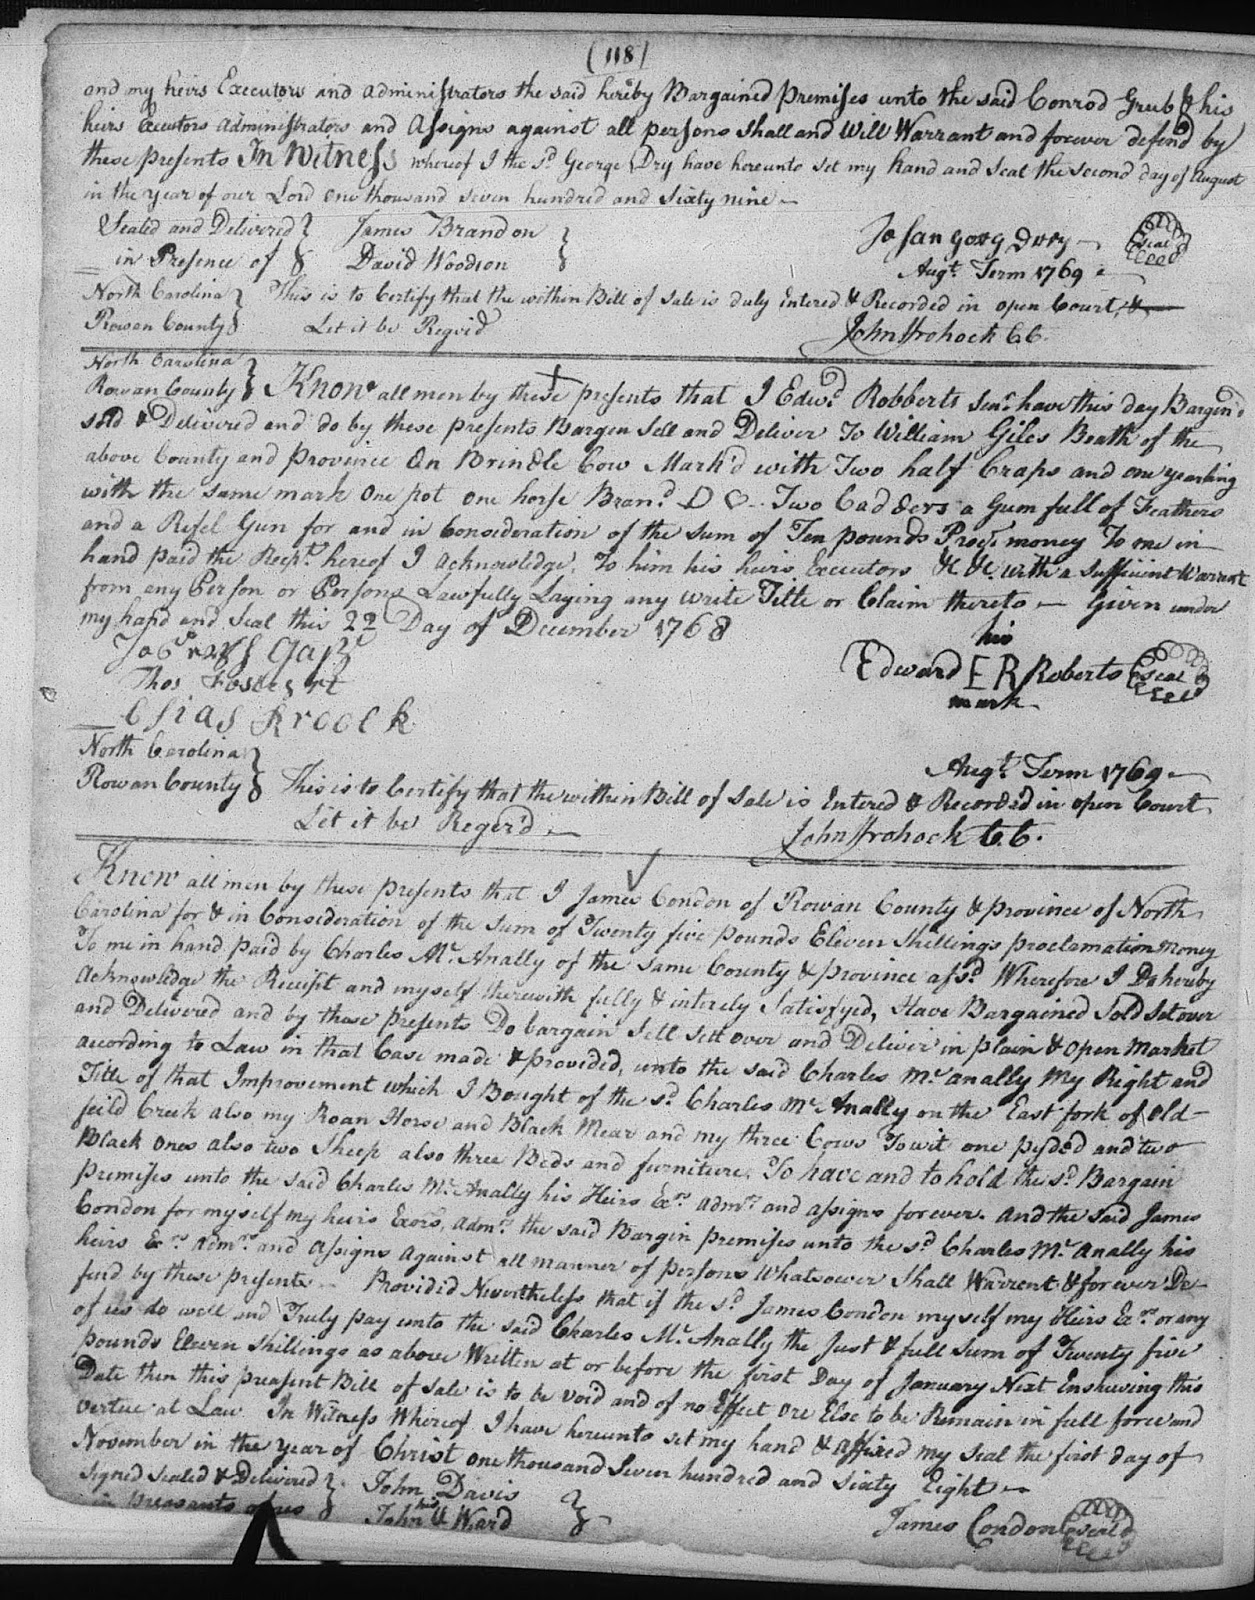 (118)
and my heirs Executors and administrators the said hereby Bargained premises unto the said Conrod Grub & his
heirs Executors Administrators and Assigns against all persons shall and Will Warrant and forever defend by
these presents In Witness whereof I the sd. George Dry have hereunto set my hand and Seal the second day of August
in the year of our Lord one thousand seven hundred and Sixty nine —
Sealed and Delivered } James Brandon }
in Presence of } David Woodson }
seal
Augt. Term 1769
North Carolina } This is to Certify that the within Bill of Sale is duly Entered & Recorded in open Court, &
Rowan County } Let it be Regrid
John Frohock CC.
North Carolina }
Rowan County } Know all men by these presents that I Edwd. Robberts senr. have this day Bargin'd
sold & Delivered and do by these presents Bargen Sell and Deliver To William Giles Boath of the
above County and province On Brindle Cow Mark'd with Two half Craps and one yearling
with the same mark one pot one horse Brand. D ♡ Two Cadders a Gum full of Feathers
and a Rifel Gun for and in Consideration of the sum of Ten pounds Proc. money To me in
hand paid the Recpt. hereof I acknowledge, To him his heirs Executors &c &c. with a sufficient Warrant
from any Person or Persons Lawfully Laying any write Title or Claim thereto — Given under
my hand and Seal this 22 Day of December 1768
his
Edward E R Roberts seal
mark
Augt. Term 1769
North Carolina }
Rowan County } This is to Certify that the within Bill of Sale is Entered & Recorded in open Court
Let it be Reger'd —
John Frohock C.C.
Know all men by these presents that I James Condon of Rowan County & province of North
Carolina for & in Consideration of the Sum of Twenty five pounds Eleven Shillings proclamation money
To me in hand paid by Charles Mc.Anally of the same County & province afsd. Wherefore I Do hereby
Acknowledge the Receipt and myself therewith fully & intirely Satisfyed, Have Bargained Sold Set over
and Delivered and by these presents Do bargain Sell Sett over and Deliver in plain & open Market
according to Law in that Case made & provided, unto the said Charles Mc.anally My Right and
Title of that Improvement which I Bought of the sd. Charles Mc.Anally on the East fork of Old-
feild Creek also my Roan Horse and Black Mear and my three Cows To wit one pyded and two
Black ones also two Sheep also three Beds and furniture. To have and to hold the sd. Bargain
premises unto the said Charles Mc.Anally his Heirs Exrs. admrs. and assigns forever. And the said James
Condon for myself my heirs Exors. admrs. the said Bargin premises unto the sd. Charles Mc.anally his
heirs Exrs. admrs. and Assigns Against all manner of persons Whatsower Shall Warrent & forever De-
fend by these presents — Providid Nevertheless that if the sd. James Condon myself my Heirs Exrs. or any
of us do well and Truly pay unto the said Charles Mc.Anally the Just & full Sum of Twenty five
pounds Eleven Shillings as above Written at or before the first Day of January Next Enshewing this
Date then this preasent Bill of Sale is to be void and of no Effect ore Else to be Remain in full force and
vertue at Law In Witness Whereof I have hereunto set my hand & affixed my Seal the first day of
November in the year of Christ one thousand Seven hundred and sixty Eight —
Signed sealed & Delivered } John Davis }
in preasants of us } John his Ward }
James Condon seal